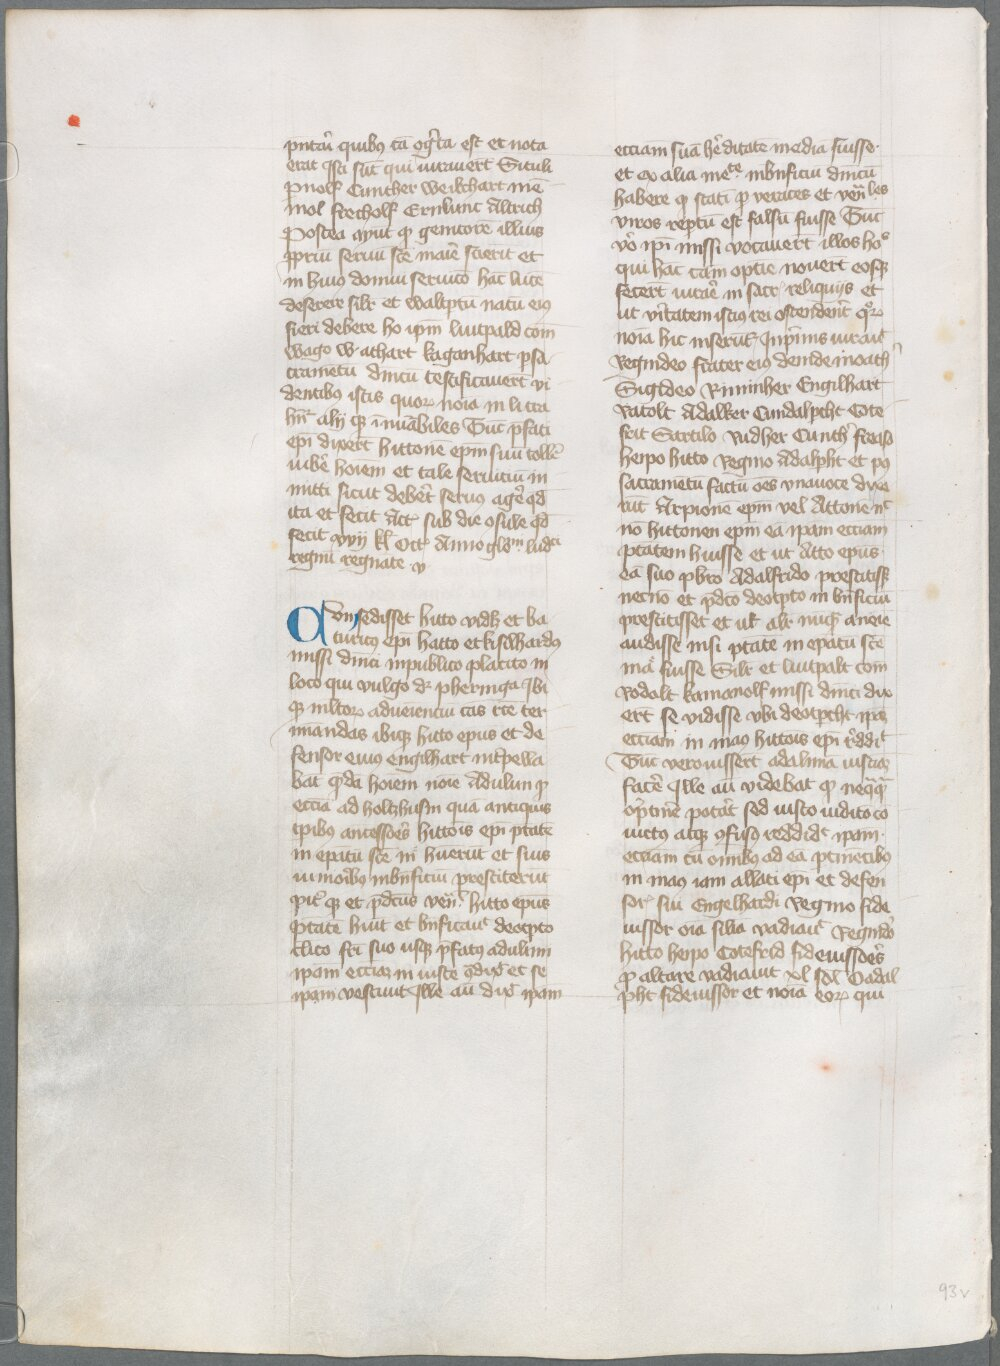 pntau quibus ca ogita est et nota
erat Isti sut qui iuravert Situli
pnolf Cunther Weilthart me
mol frecholf Ernlunt Altrich
Postea aiut qp genitore illius
ppriu seruu sce marie scierit et
in huius domui seruico hac luce
deserere silr et waltptu natu eius
fieri debere ho ipm liutpald com
wago w athart kaganhart psa
crametu dnicu testificauert vi
dentibus istis quor noia in littra
hnt alij qz inuabiles Tuc pfati
epi dixert hittone epm suu tolle
iube hoiem et tale seruitiu in
mitti sicut debet seruus age qd
ita et fecit Act sub die osule qd
fecit xvij kl Oct Anno glo am ludci
regnu regnate v
Conseddisset hitto videlz et ba
turicus epi hatto et kiselhardus
missi dnici in publico placito in
loco qui vulgo dr pheringa Ibi
qz mltor adueienciu cas rcte ter
minandas ibiqz hitto epus et de
fensor eius engilhart intpella
bat qda hoiem noie Adulun p
eccia ad holtzhusin qua antiquis
tpibus ancessoris hittois epi ptate
in epatu sce m huerut et suis
iu moibus in bnficiu prestiterut
pit qp et pdcus ven hitto epus
ptate huit et bnficauit deotpto
clico fri suo usqz pfatus adulun
ipam ecciaz in iuste qdixit et se
ipam vestiuit Ille au dixit ipam
ecciam sua hereditate media fuisse
et ex alia mete in bnficiu dnicu
habere qp stati p veraces et ven les
viros reptu est falsu fuisse Tuc
vo ipi missi vocauert illos ho
qui hac cam optie nouert eosqz
fecert iurae in sacr reliquijs et
ut vitatem istius rei ostendent qor
noia hic inserut Inpimis iurauit
Regindeo frater eius deinde inoath
Sugideo Riminher Engilhart
Ratolt Adalker Cundalpcht Cote
frit Sartilo Ridher Cunth freaso
heipo hitto Regino Adalpht et pq
sacrametu factu oes vnauoce dixe
rut Arpione epm vel Attone nc
no hittonen epm ea ipam ecciam
ptatem huisse et ut Atto epus
ea suo pbro Adalfrido prestitiss
necno et pdco deotpto in bnficiu
prestitisset et ut alr nuqz a neie
audisse nisi ptate in epatu sce
ma fuisse Silr et liutpalt com
Rodolt kamanolf missi dnici dix
ert se vidisse vbi deotpcht ipa
ecciam in manus hittois epi reddit
Tuc vero iussert adaluna iusciaz
face Ille au videbat qp neqqz
optine potat sed iusto iuditio co
uictus atqz ofusus reddidit ipam
ecciam cu omibus ad ea ptinetibus
in manus iam allati epi et defen
sor sui Engelhardi Regino fide
iussor oia silia vadiauit Reginso
hitto heipo Cotefrid fideiussores
p altare vadiauit xl sol Oadal
pht fideiussor et noia eor qui
93v